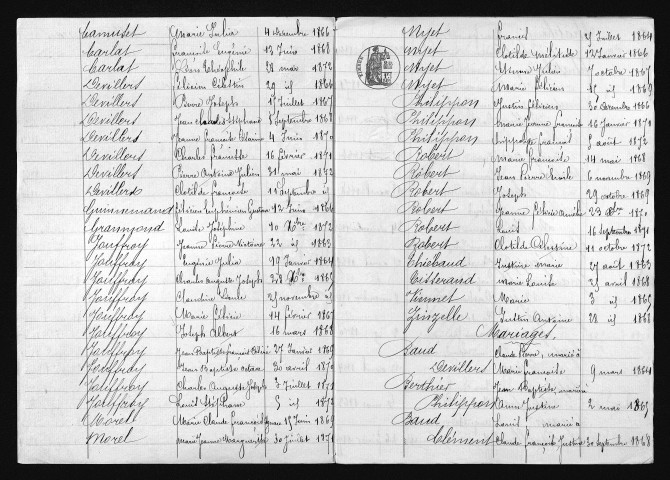 Camuset Marie Julia 4 décembre 1866
Carlat Françoise Eugénie 13 Juin 1868
Carlat 28 mai 1872
Devillers Célestin 29 id 1866
Devillers Pierre Joseph 17 Juillet 1867
Devillers Jean Stéphane 8 Septembre 1868
Devillers Jeanne Françoise 4 Juin 1870
Devillers Charles 16 février 1871
Devillers Pierre Antoine Julien 31 mai 1872
Devillers Clotilde françoise 11 Septembre id
Guinnemand Euphémien 12 Juin 1866
Grammond Josephine 10 Xbre 1872
Jouffroy Jeanne Pierre Victoire 22 id 1863
Jouffroy Eugénie Julia 29 Janvier 1864
Jouffroy Charles Auguste Joseph 28 Xbre 1865
Jouffroy Claudine 25 novembre id
Jouffroy Marie 14 février 1867
Jouffroy Joseph Albert 16 mars 1868
Jouffroy Jean Baptiste francois 27 Janvier 1869
Jouffroy Jean Baptiste 30 avril 1870
Jouffroy Charles Auguste Joseph 3 Juillet 1871
Jouffroy Louis Stéphane 5 id 1872
Morel Marie Claude Françoise 15 Juin 1869
Morel Marie Jeanne Marguerite 30 Juillet 1871
Myet Francis 25 Juillet 1864
Myet Clotilde Mathilde 12 Janvier 1866
Myet Julien 7 octobre 1867
Myet Marie 15 id 1869
Philippon Justin Félicien 30 décembre 1866
Philippon Marie Jeanne françoise 16 Janvier 1870
Philippon Hippolyte francois 5 août 1872
Robert Marie francoise 14 mai 1868
Robert Jean Pierre 6 novembre 1869
Robert Joseph 29 octobre 1869
Robert Jeanne 23 Xbre 1870
Robert Louis 16 Septembre 1871
Robert Clotilde Célestine 11 octobre 1872
Thiebaud Justine Marie 27 août 1863
Titterand Marie Louise 25 avril 1868
Vinnet Marie 3 id 1865
Zinzelle Justin Antoine 28 id 1868
Mariages.
Baud Claude Pierre, marié à
Devillers Marie Françoise 9 mars 1864
Berthier Jean Baptiste, marié à
Philippon Ann Justine 2 mai 1865
Baud Louis marié à
Clément Claude françoise Justine 30 Septembre 1868